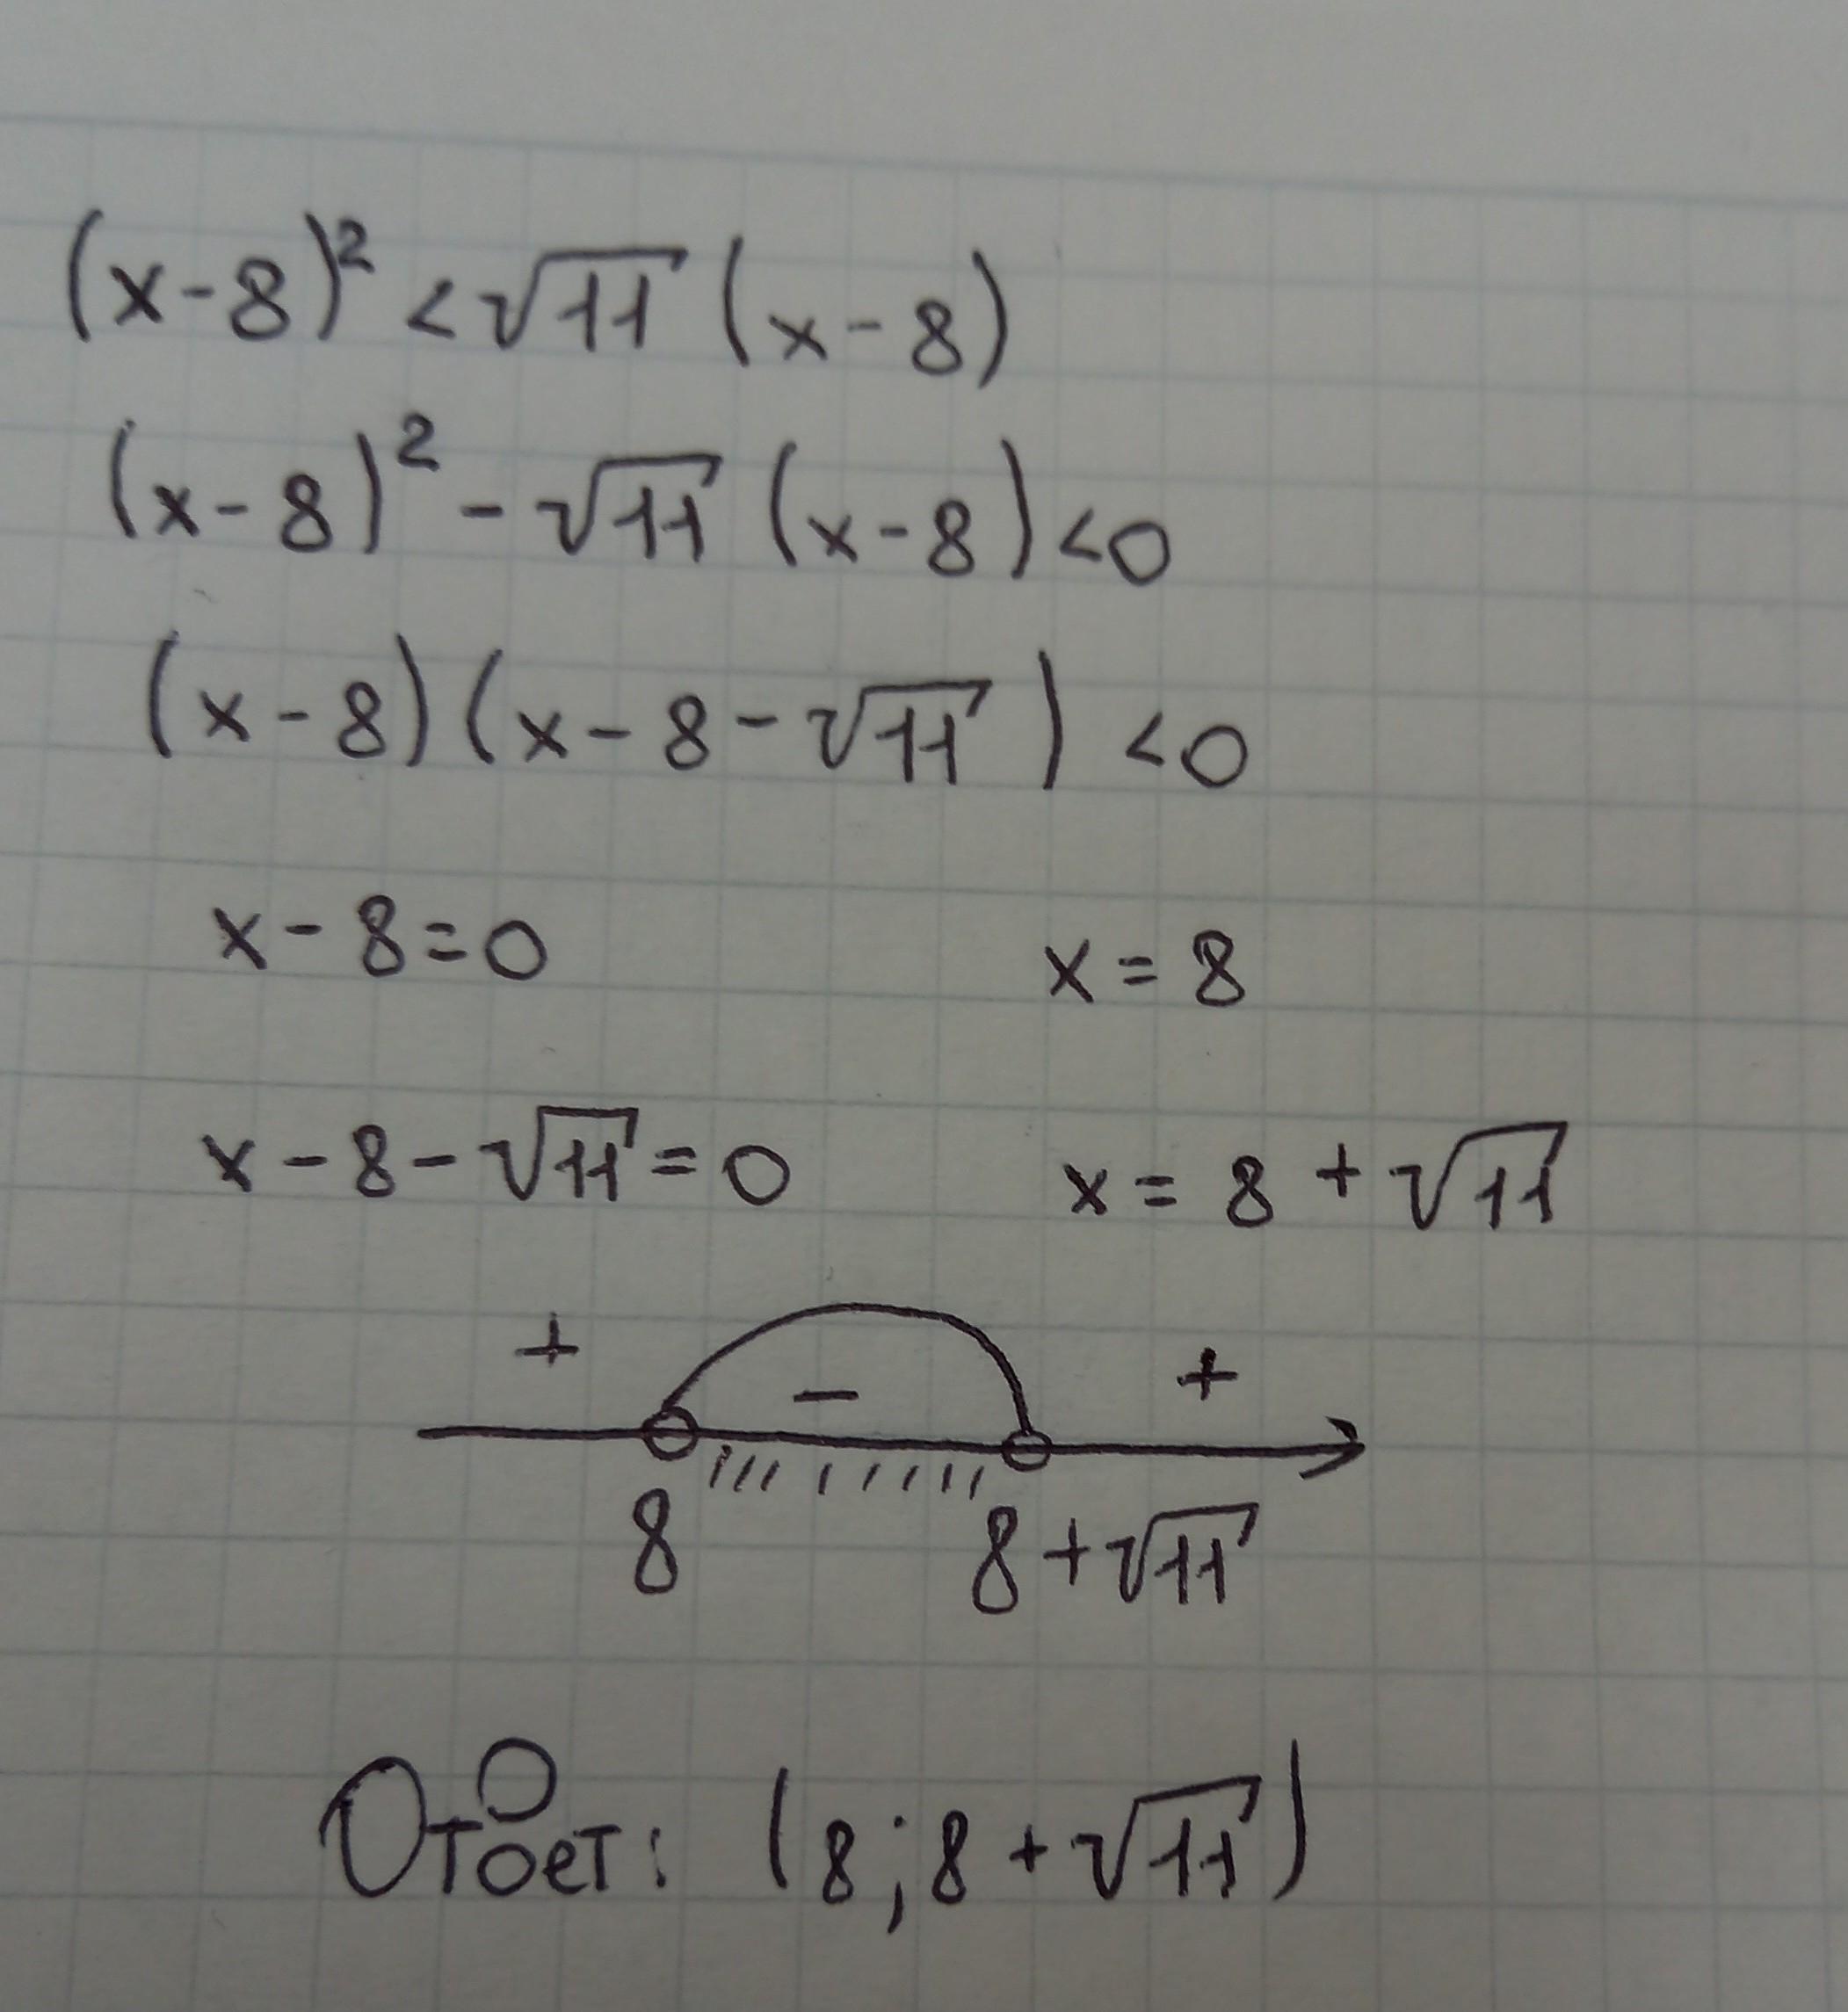 (x-8)² < √11 (x-8)
(x-8)² - √11 (x-8) < 0
(x-8)(x-8-√11) < 0
x-8=0 x=8
x-8-√11=0 x=8+√11
+ − +
8 8+√11
Ответ: (8; 8+√11)